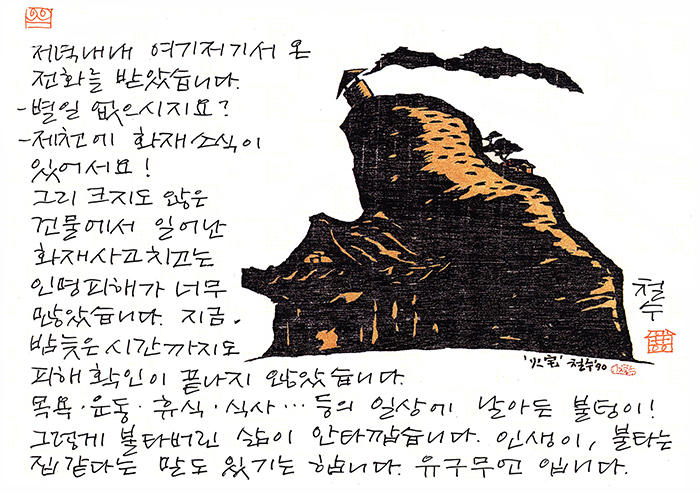 저녁내내 여기저기서 온
전화를 받았습니다.
-별일 없으시지요?
-제천에 화재소식이
있어서요!
그리 크지도 않은
건물에서 일어난
화재사고치고는
인명피해가 너무
많았습니다. 지금.
밤늦은 시간까지도
피해 확인이 끝나지 않았습니다.
목욕·운동·휴식·식사…등의 일상에 날아든 불덩이!
그렇게 불타버린 삶이 안타깝습니다. 인생이, 불타는
집같다는 말도 있기는 합니다. 유구무언 입니다.
철수
'火宅' 철수 '90